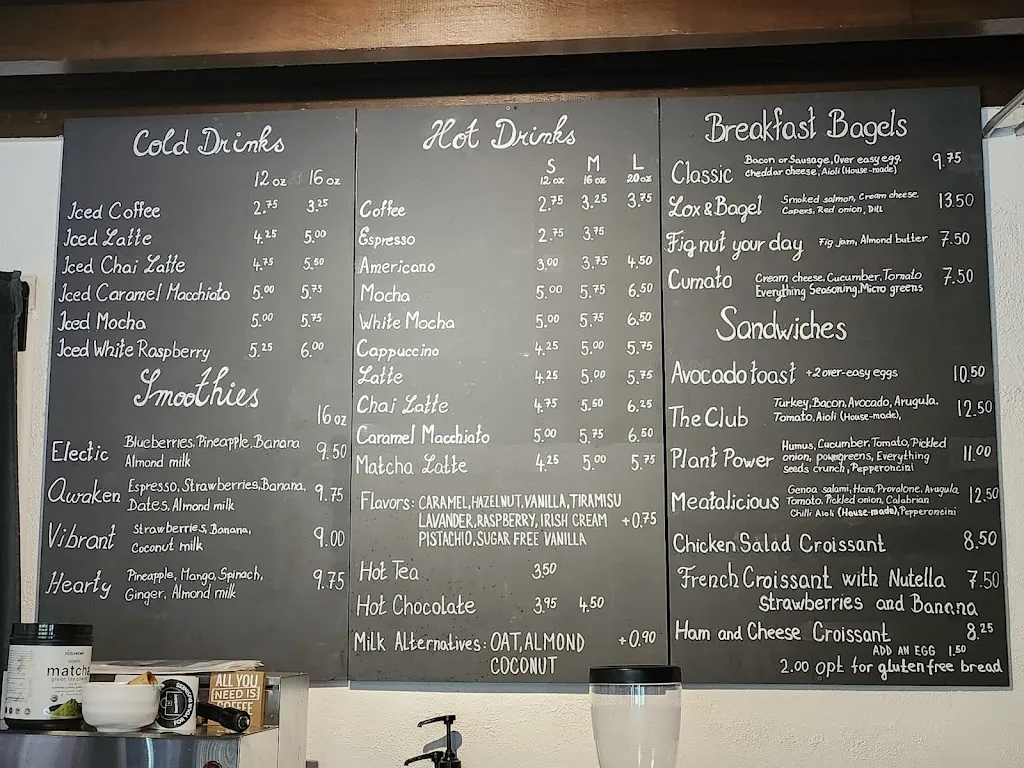 Cold Drinks
12 oz 16 oz
Iced Coffee 2.75 3.25
Iced Latte 4.25 5.00
Iced Chai Latte 4.75 5.50
Iced Caramel Macchiato 5.00 5.75
Iced Mocha 5.00 5.75
Iced White Raspberry 5.25 6.00
Smoothies
16 oz
Electic Blueberries, Pineapple, Banana 9.50
Almond milk
Awaken Espresso, Strawberries, Banana, 9.75
Dates, Almond milk
Vibrant Strawberries, Banana, 9.00
Coconut milk
Hearty Pineapple, Mango, Spinach, 9.75
Ginger, Almond milk
Hot Drinks
S M L
12 oz 16 oz 20 oz
Coffee 2.75 3.25 3.75
Espresso 2.75 3.75
Americano 3.00 3.75 4.50
Mocha 5.00 5.75 6.50
White Mocha 5.00 5.75 6.50
Cappuccino 4.25 5.00 5.75
Latte 4.25 5.00 5.75
Chai Latte 4.75 5.50 6.25
Caramel Macchiato 5.00 5.75 6.50
Matcha Latte 4.25 5.00 5.75
Flavors: CARAMEL, HAZELNUT, VANILLA, TIRAMISU
LAVANDER, RASPBERRY, IRISH CREAM +0.75
PISTACHIO, SUGAR FREE VANILLA
Hot Tea 3.50
Hot Chocolate 3.95 4.50
Milk Alternatives: OAT, ALMOND +0.90
COCONUT
Breakfast Bagels
Classic Bacon or Sausage, Over easy egg, 9.75
cheddar cheese, Aioli (House-made)
Lox & Bagel Smoked salmon, Cream cheese, 13.50
Capers, Red onion, Dill
Fig nut your day Fig jam, Almond butter 7.50
Cumato Cream cheese, Cucumber, Tomato 7.50
Everything Seasoning, Micro greens
Sandwiches
Avocado toast +2 over-easy eggs 10.50
The Club Turkey, Bacon, Avocado, Arugula, 12.50
Tomato, Aioli (House-made),
Plant Power Humus, Cucumber, Tomato, Pickled 11.00
onion, powgreens, Everything
seeds crunch, Pepperoncini
Meatalicious Genoa salami, Ham, Provolone, Arugula 12.50
Tomato, Pickled onion, Calabrian
Chilli Aioli (House-made), Pepperoncini
Chicken Salad Croissant 8.50
French Croissant with Nutella 7.50
Strawberries and Banana
Ham and Cheese Croissant 8.25
ADD AN EGG 1.50
2.00 opt for gluten free bread
matcha
ALL YOU
NEED IS
COFFEE